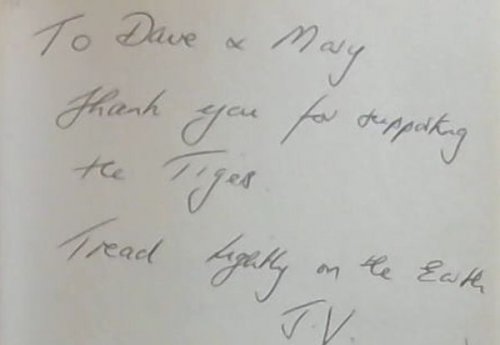 To Dave & Mary
Thank you for supporting
the Tigers
Tread lightly on the Earth
J.V.